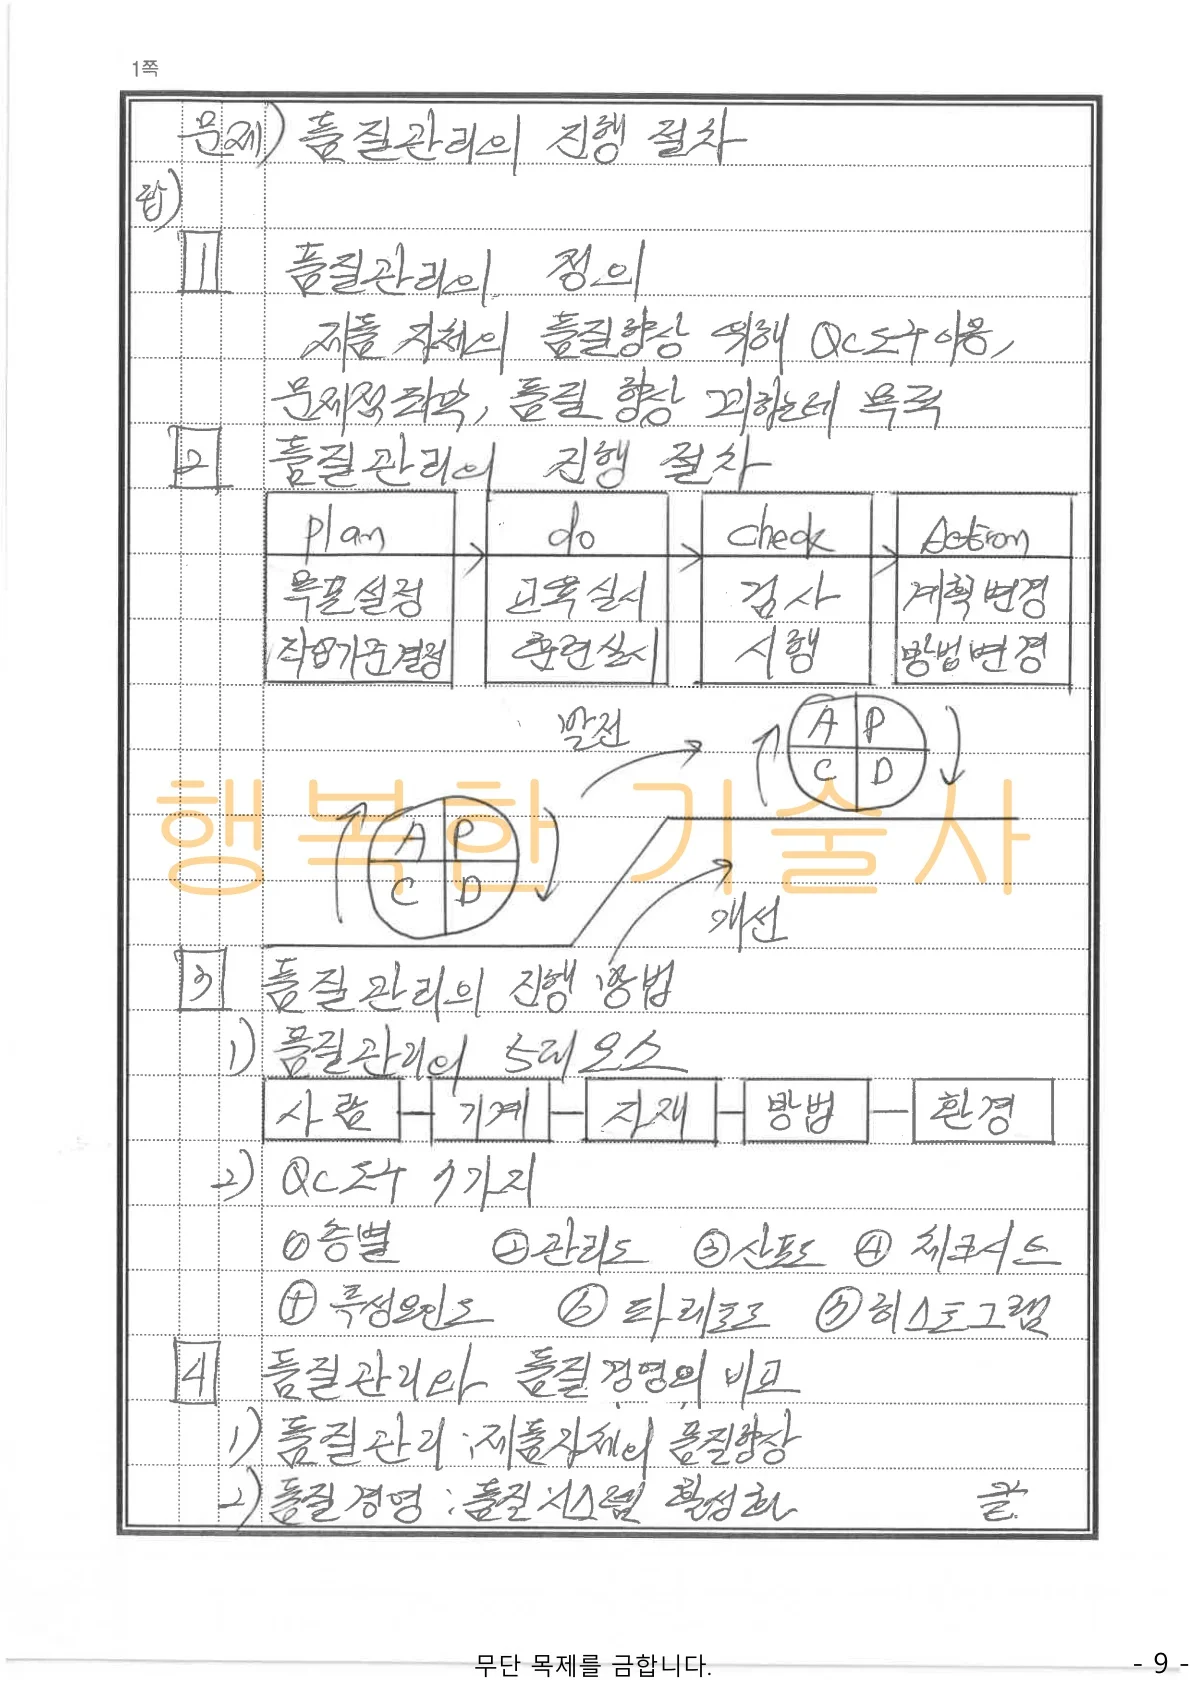 1쪽
문제) 품질관리의 진행 절차
답)
1 품질관리의 정의
제품 자체의 품질향상 위해 QC도구 이용,
문제점파악, 품질 향상 꾀하는데 목적
2 품질관리의 진행 절차
plan do check Action
목표설정 교육실시 검사 계획변경
작업기준결정 훈련실시 시행 방법변경
발전
A P
C D
행복한 기술사
A P
C D
개선
3 품질관리의 진행 방법
1) 품질관리의 5대요소
사람 기계 자재 방법 환경
2) QC도구 7가지
① 층별 ② 관리도 ③ 산포도 ④ 체크시트
특성요인도 ⑥ 파레토도 히스토그램
4 품질관리와 품질경영의 비교
1) 품질관리 : 제품자체의 품질향상
2) 품질경영 : 품질시스템 활성화 끝.
무단 목제를 금합니다.
- 9 -